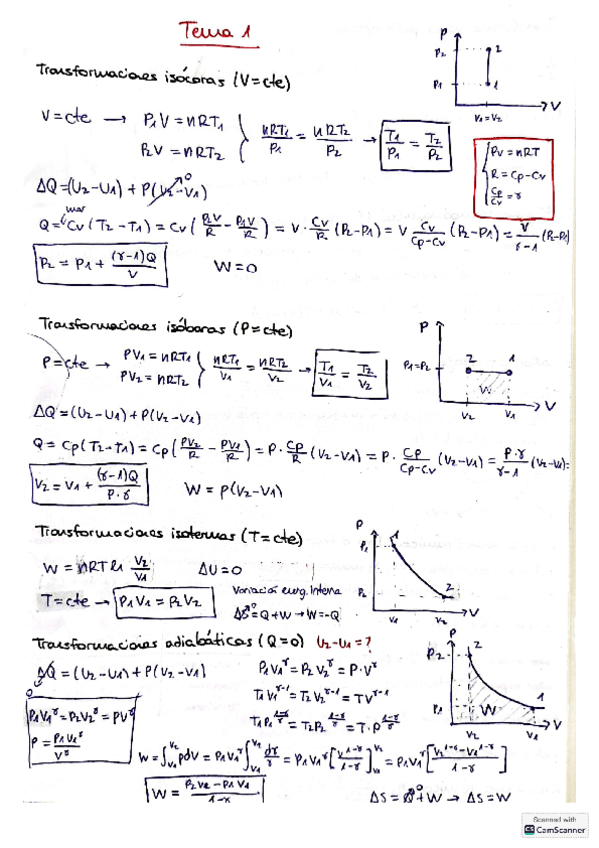 Tema 1
Transformaciones isócoras (V=cte)
P
P2
2
P1
1
V1=V2
V
V=cte → P1V = nRT1
P2V = nRT2
nRT1/P1 = nRT2/P2 → T1/P1 = T2/P2
PV = nRT
R = Cp-Cv
Cp/Cv = γ
ΔQ=(U2-U1) + P(V2-V1) 0
Q = Cv (T2-T1) = Cv (P2V/R - P1V/R) = V · Cv/R (P2-P1) = V Cv/Cp-Cv (P2-P1) = V/γ-1 (P2-P1)
P2 = P1 + (γ-1)Q/V
W=0
Transformaciones isóbaras (P=cte)
P
P1=P2
2
1
W
V2
V1
V
P=cte → PV1 = nRT1
PV2 = nRT2
nRT1/V1 = nRT2/V2 → T1/V1 = T2/V2
ΔQ = (U2-U1) + P(V2-V1)
Q = Cp(T2-T1) = Cp (PV2/R - PV1/R) = P · Cp/R (V2-V1) = P · Cp/Cp-Cv (V2-V1) = P·γ/γ-1 (V2-V1)=
V2 = V1 + (γ-1)Q/P·γ
W = P(V2-V1)
Transformaciones isotermas (T=cte)
P
P1
1
P2
2
V1
V2
V
W = nRT ln V2/V1
ΔU=0
T=cte → P1V1 = P2V2
Variación energ. Interna
ΔS=Q+W → W=-Q
0
Transformaciones adiabáticas (Q=0) U2-U1=?
P
P2
2
P1
1
W
V2
V1
V
ΔQ = (U2-U1) + P(V2-V1)
0
P1V1^γ = P2V2^γ = P·V^γ
T1V1^γ-1 = T2V2^γ-1 = TV^γ-1
T1P1^1-γ/γ = T2P2^1-γ/γ = T·P^1-γ/γ
P1V1^γ = P2V2^γ = PV^γ
P = P1V1^γ/V^γ
W = ∫V1 V2 PdV = P1V1^γ ∫V1 V2 dV/V^γ = P1V1^γ [V^1-γ/1-γ]V1 V2 = P1V1^γ [V2^1-γ-V1^1-γ/1-γ]
W = P2V2-P1V1/1-γ
ΔS = Q+W → ΔS=W
0
Scanned with
CS CamScanner